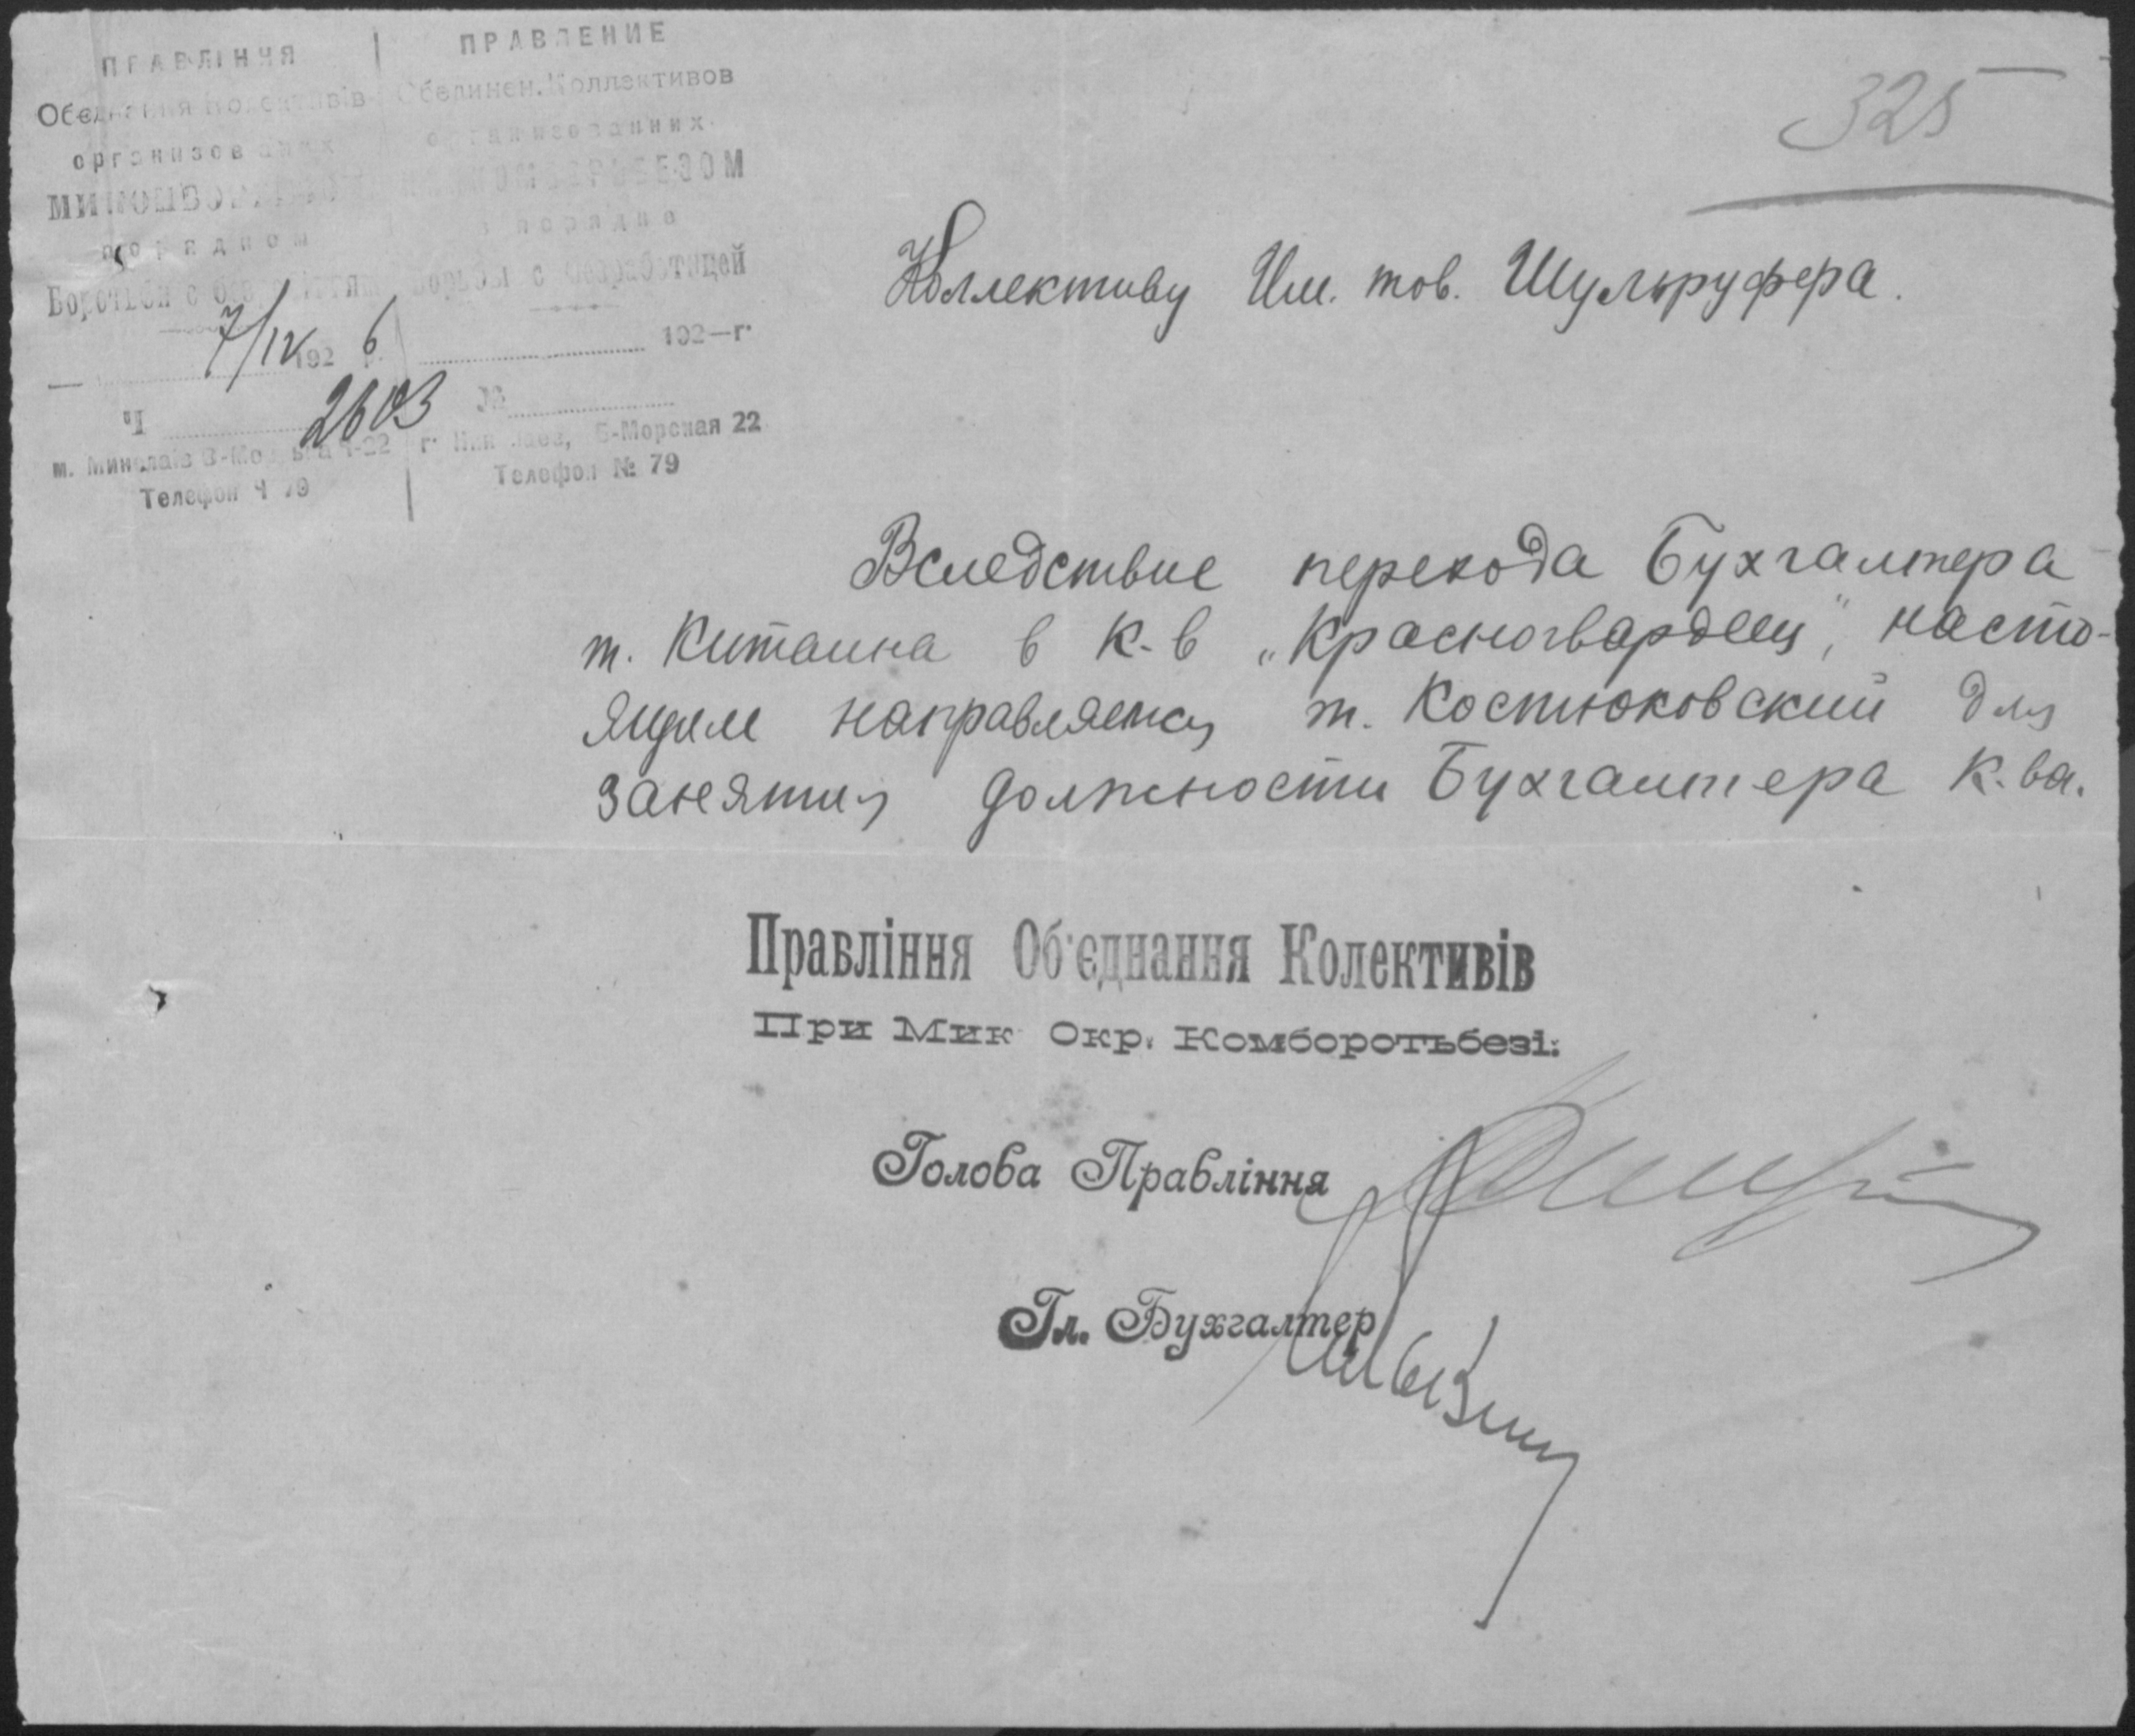 ПРАВЛІННЯ
Обєднання Колективів
организованих
порядком
Боротьби с
7/IV 1926 р.
Ч 2603
м. Миколаїв В-Морська Ч-22
Телефон Ч 79
ПРАВЛЕНИЕ
Обединен. Коллективов
организованних
в порядке
борьбы с безработицей
192—г.
№
г. Николаев, Б-Морская 22
Телефон № 79
325
Коллективу Им. тов. Шульруфера.
Вследствие перехода Бухгалтера
т. Китаина в К-в „Красногвардеец", насто-
ящим направляется т. Костюковский для
занятия должности Бухгалтера К-ва.
Правління Об'єднання Колективів
При Мик Окр. Комборотьбезі:
Голова Правління
Гл. Бухгалтер